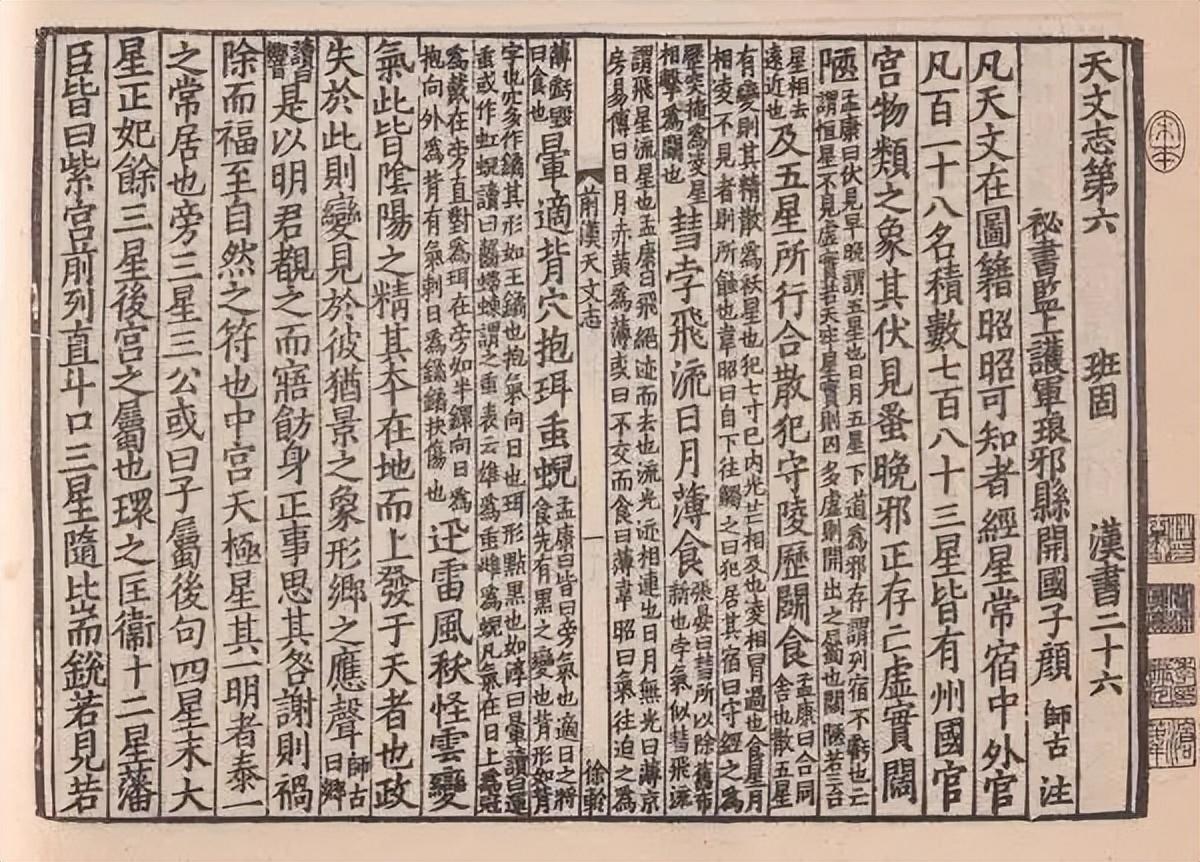 天文志第六 班固 漢書二十六
祕書監上護軍琅邪縣開國子顏 師古 注
凡天文在圖籍昭昭可知者經星常宿中外官
凡百一十八名積數七百八十三星皆有州國官
宮物類之象其伏見蚤晚邪正存亡虛實闊
陿孟康曰伏見早晚謂五星也日月五星下道為邪存謂列宿不虧也亡
謂恒星不見虛實若天牢星實則囚多虛則開出之屬也闊陿若三台
星相去遠近也及五星所行合散犯守陵歷鬬食孟康曰合同舍也散五星
有變則其精散為祅星也犯七寸已內光芒相及也凌相冒過也食星月
相凌不見者則所蝕也韋昭曰自下往觸之曰犯居其宿曰守經之為
歷突掩為凌星相擊為鬬也彗孛飛流日月薄食張晏曰彗所以除舊布新也孛氣似彗飛流
謂飛星流星也孟康曰飛絕迹而去也流光迹相連也日月無光曰薄京
房易傳曰日月赤黃為薄或曰不交而食曰薄韋昭曰氣往迫之為
前漢天文志 一 徐軫
薄虧毀曰食也暈適背穴抱珥䖝蜺孟康曰皆日旁氣也適日之將食先有黑之變也背形如背
字也穴多作鐍其形如玉鐍也抱氣向日也珥形點黑也如淳曰暈讀曰運
䖝或作虹蜺讀曰齧螮蝀謂之䖝表云雄為䖝雌為蜺凡氣在日上為冠
為戴在旁直對為珥在旁如半鐶向日為抱向外為背有氣刺日為鐍鐍抉傷也迅雷風祅怪雲變
氣此皆陰陽之精其本在地而上發于天者也政
失於此則變見於彼猶景之象形鄉之應聲師古曰鄉
讀曰響是以明君覩之而寤飭身正事思其咎謝則禍
除而福至自然之符也中宮天極星其一明者泰一
之常居也旁三星三公或曰子屬後句四星末大
星正妃餘三星後宮之屬也環之匡衞十二星藩
臣皆曰紫宮前列直斗口三星隨北耑銳若見若